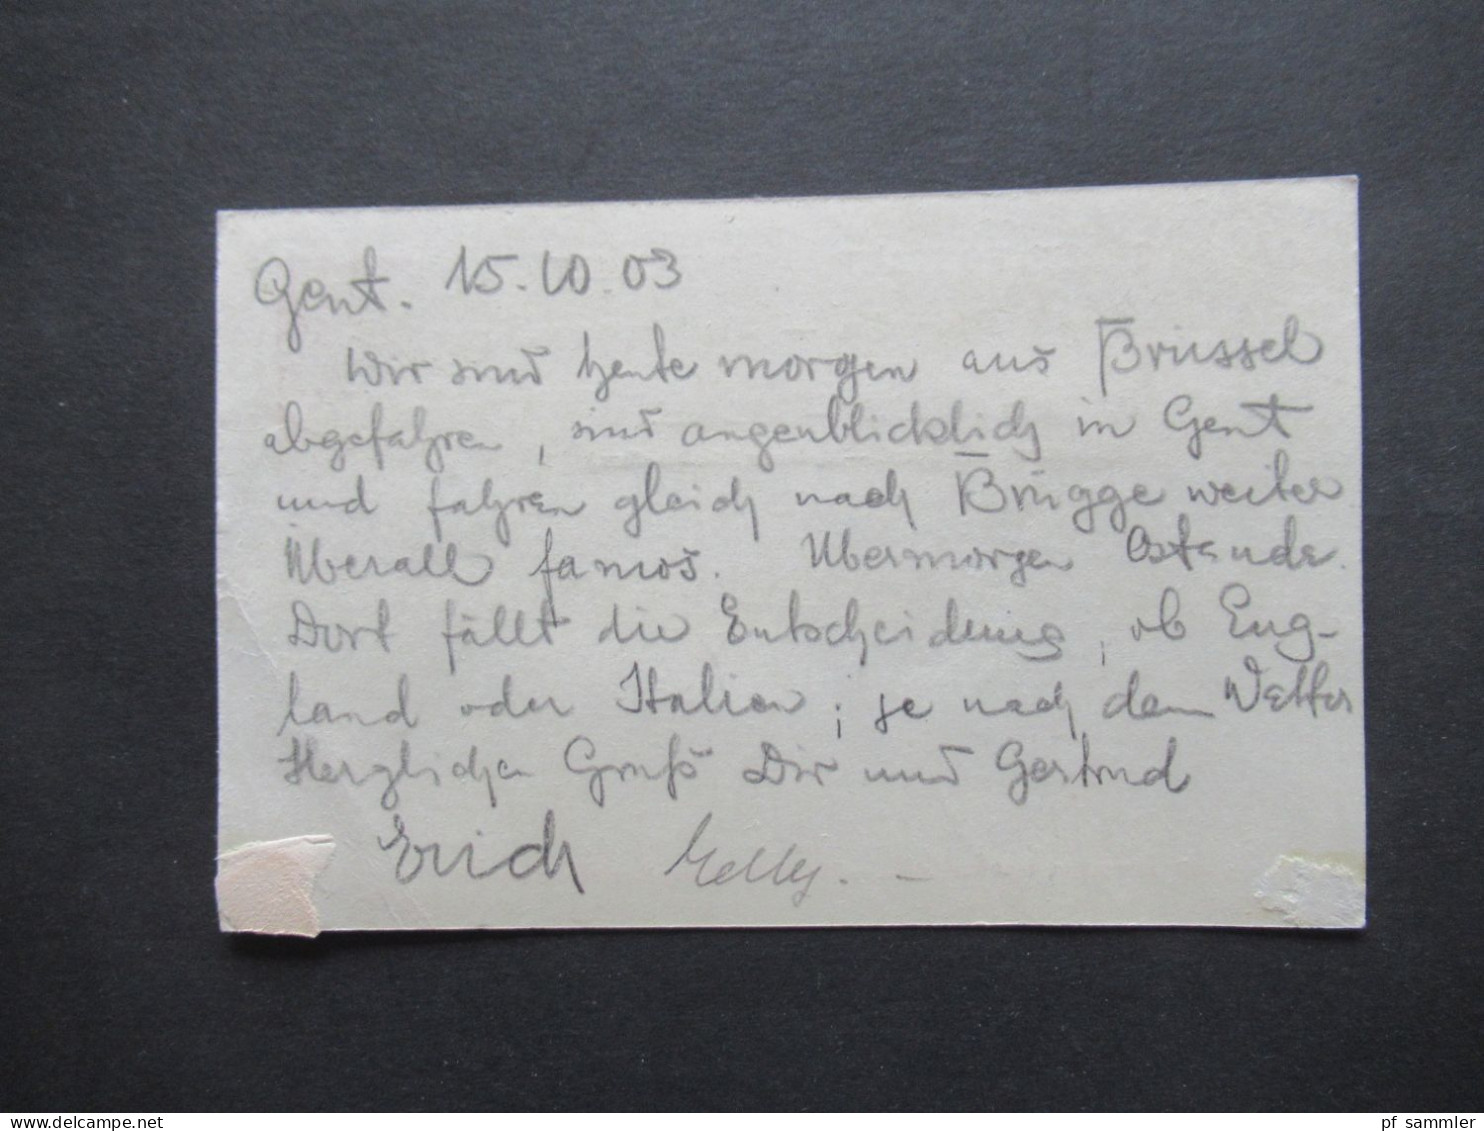 Gent. 15.10.03
Wir sind heute morgen aus Brüssel
abgefahren, sind augenblicklich in Gent
und fahren gleich nach Brügge weiter
Überall famos. Übermorgen Ostende.
Dort fällt die Entscheidung, ob Eng-
land oder Italien; je nach dem Wetter
Herzlichen Gruß Dir und Gertrud
Erich
www.delcampe.net
pf_sammler